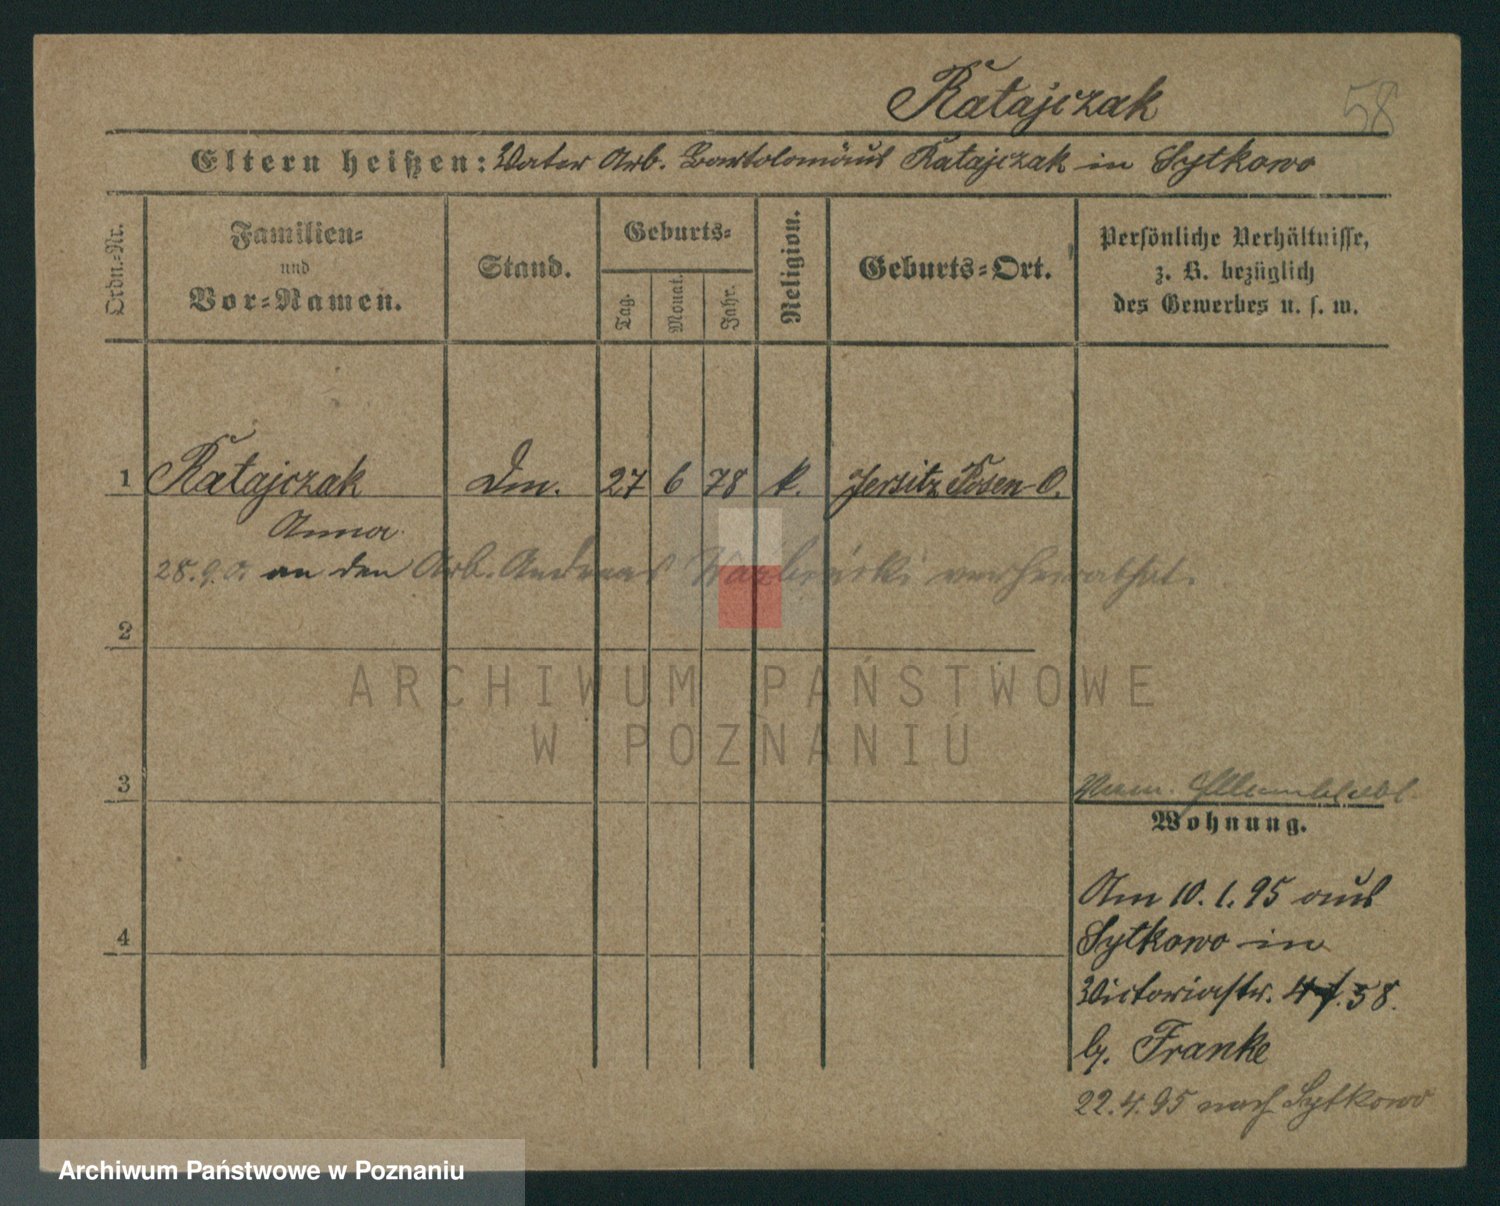 Ratajczak
58
Eltern heißen: Vater Arb. Bartolomäus Ratajczak in Sytkowo
Ordn.-Nr.
Familien-
und
Vor-Namen.
Stand.
Geburts-
Tag.
Monat.
Jahr.
Religion.
Geburts-Ort.
Persönliche Verhältnisse,
z. B. bezüglich
des Gewerbes u. s. w.
1 Ratajczak Dm. 27 6 78 k. Jersitz Posen O.
Anna
28.9.0. an den Arb. Andreas verheirathet.
2
ARCHIWUM PAŃSTWOWE
W POZNANIU
3
Wohnung.
Am 10.1.95 aus
Sytkowo in
Victoriastr. 58.
b. Franke
22.4.95 nach Sytkowo
4
Archiwum Państwowe w Poznaniu